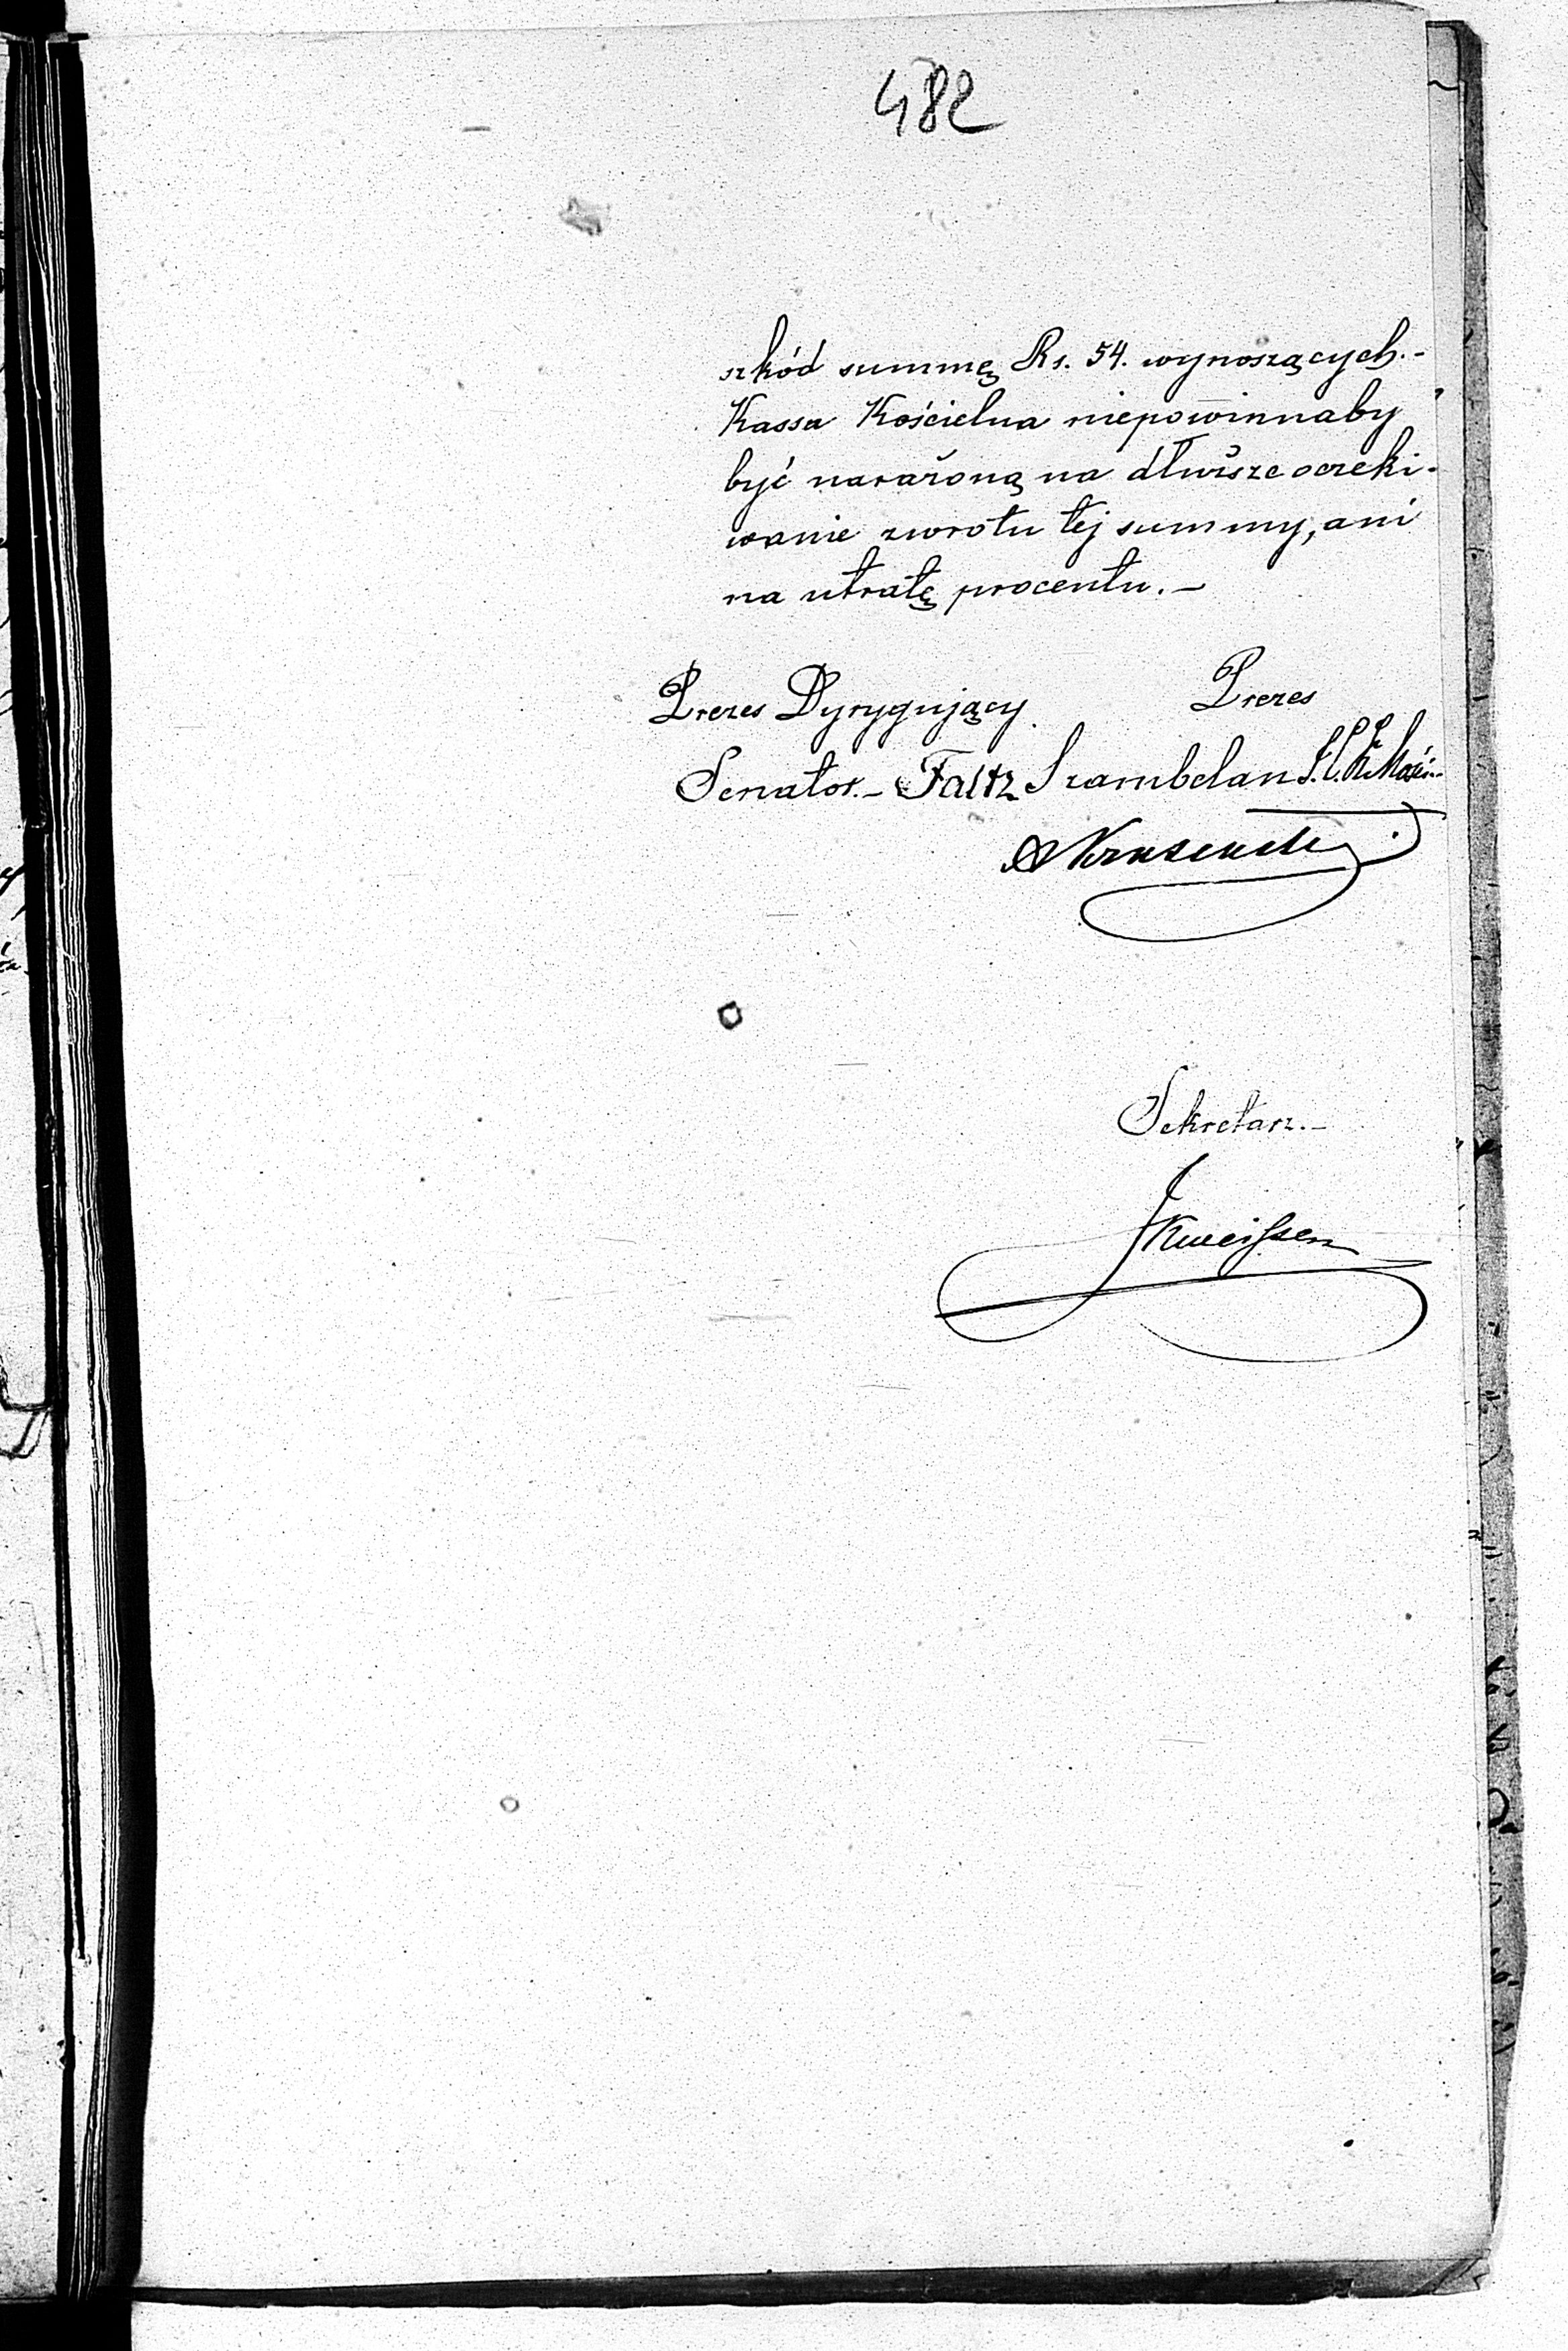 482
szkód summę Rs. 54. wynoszących.-
Kassa Kościelna niepowinnaby
być narażoną na dłuższe oczeki-
wanie zwrotu tej summy, ani
na utratę procentu.-
Prezes Dyrygujący Prezes
Senator.- Faltz Szambelan
Sekretarz.-